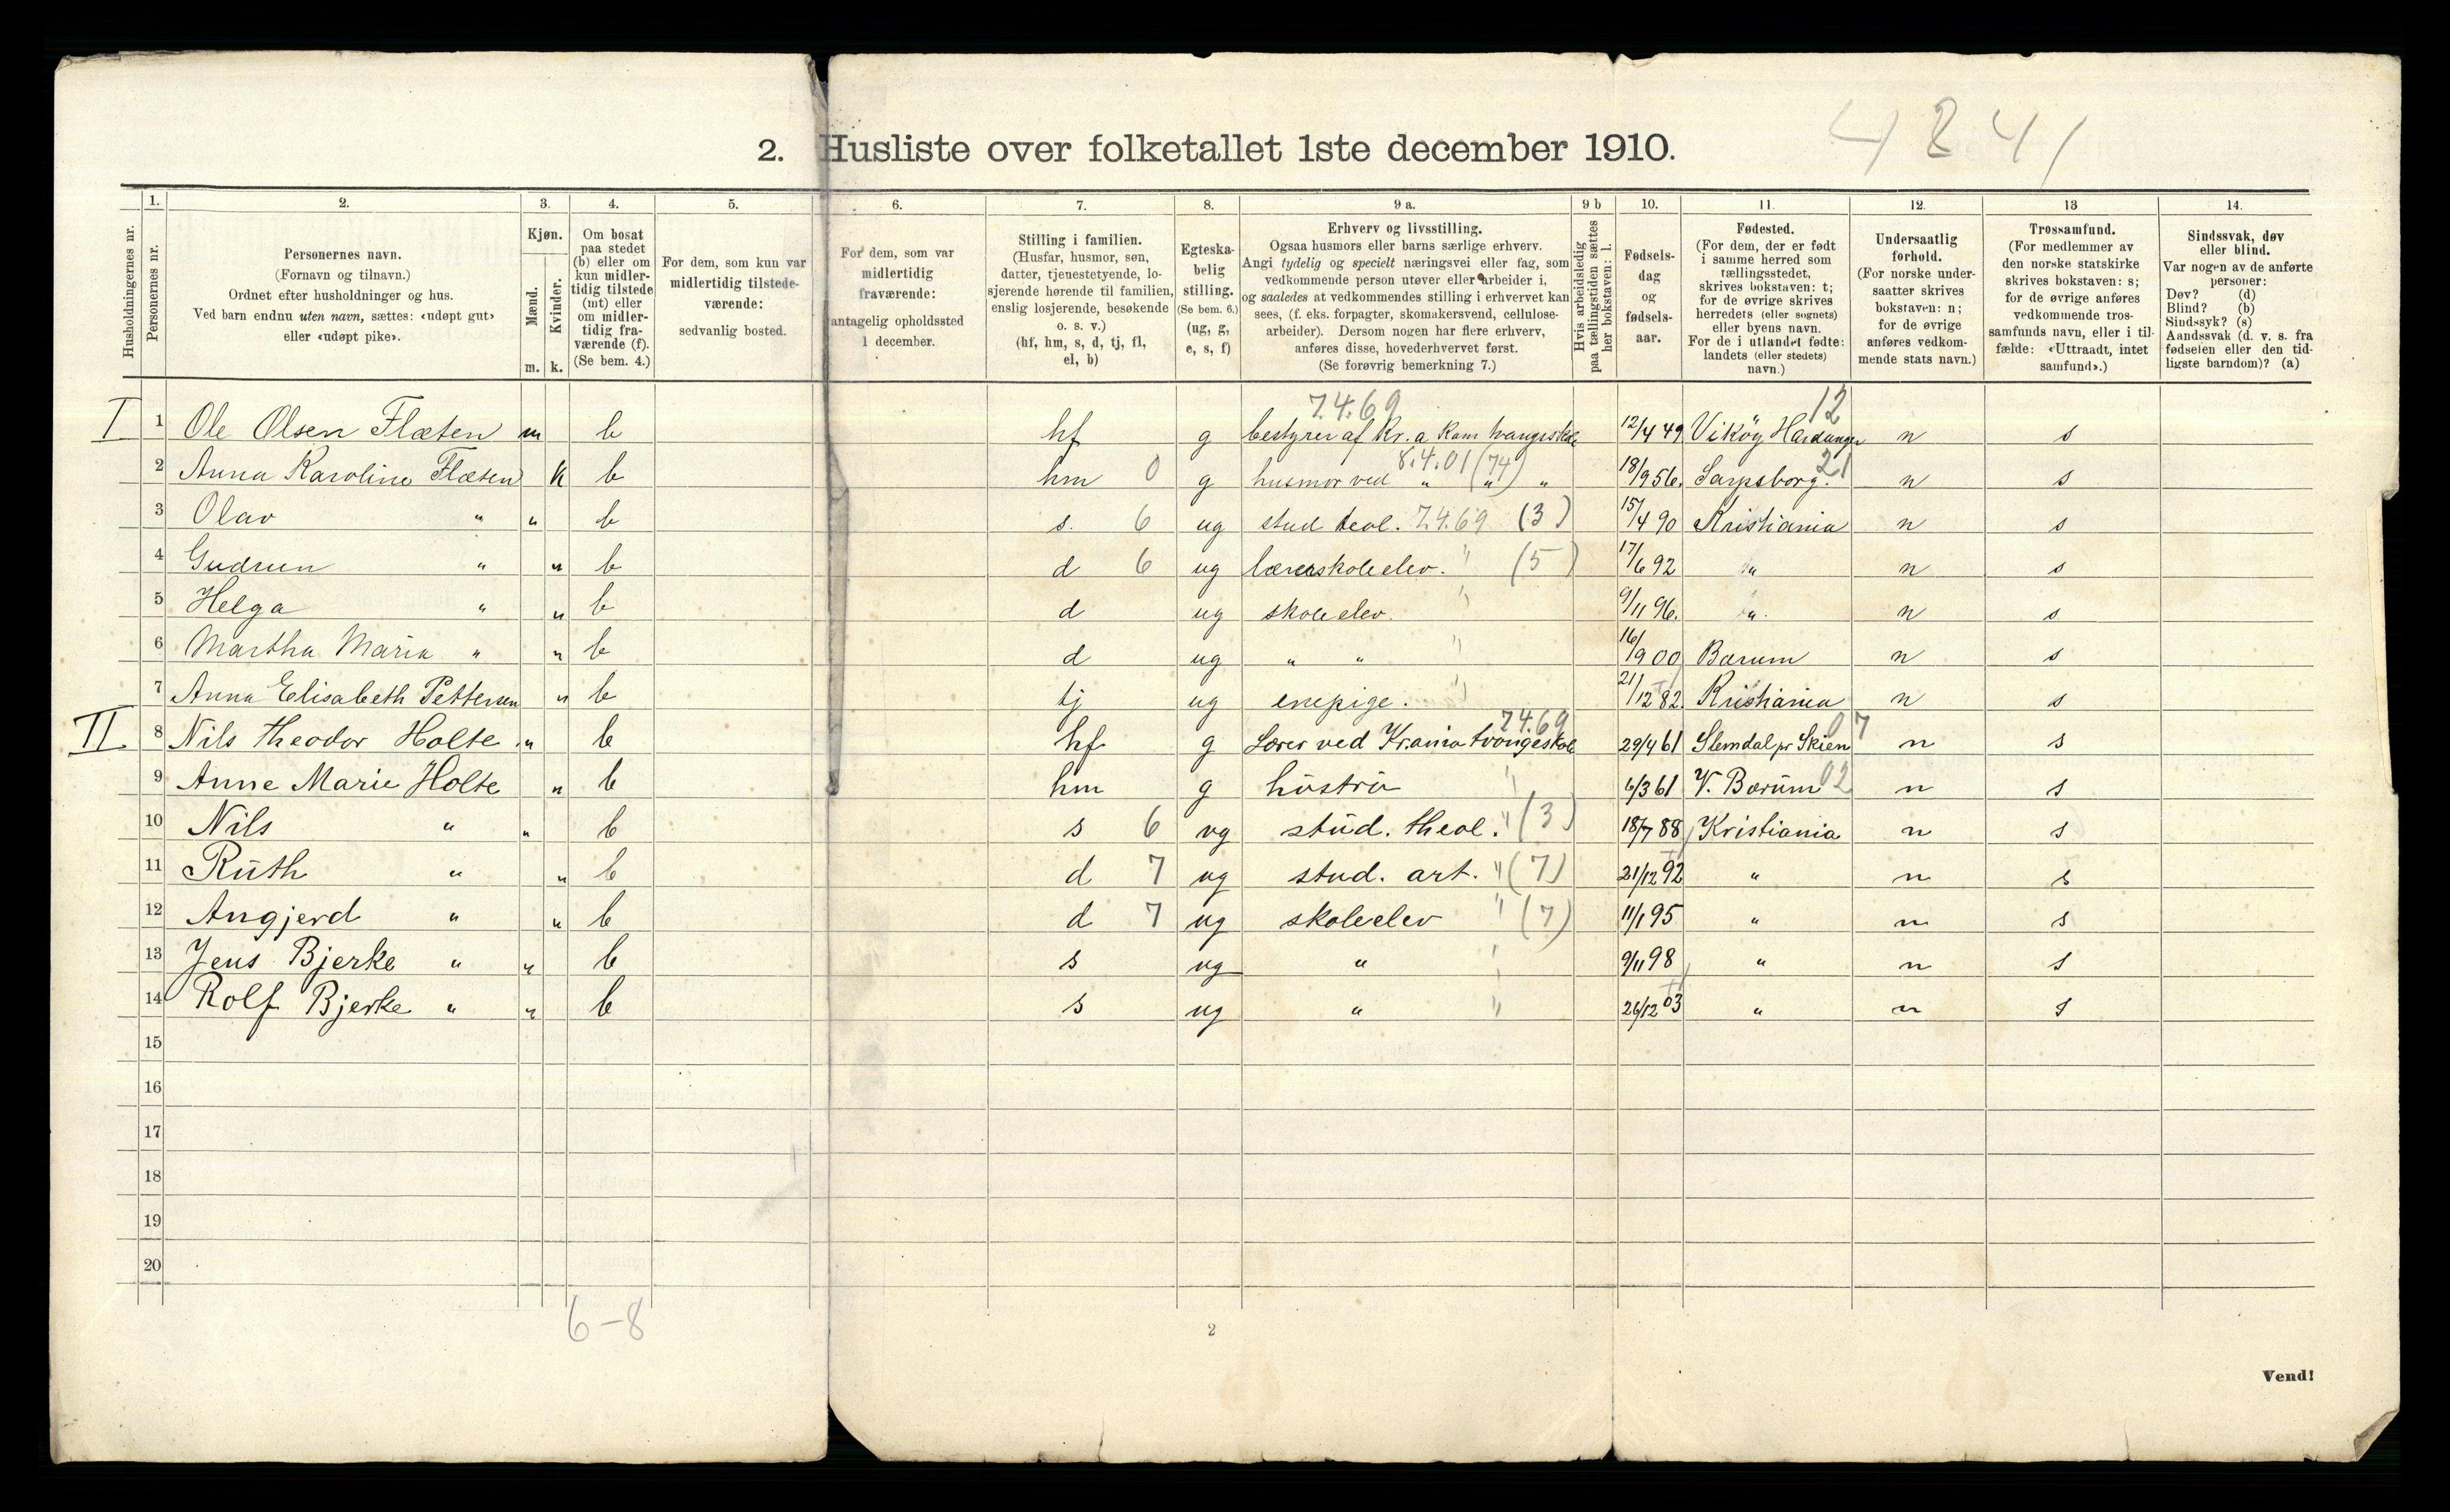 4841
2. Husliste over folketallet 1ste december 1910.
Husholdningernes nr.
1. Personernes nr.
2. Personernes navn. (Fornavn og tilnavn.) Ordnet efter husholdninger og hus. Ved barn endnu uten navn, sættes: «udøpt gut» eller «udøpt pike».
3. Kjøn. Mænd. m. Kvinder. k.
4. Om bosat paa stedet (b) eller om kun midlertidig tilstede (mt) eller om midlertidig fraværende (f). (Se bem. 4.)
5. For dem, som kun var midlertidig tilstedeværende: sedvanlig bosted.
6. For dem, som var midlertidig fraværende: antagelig opholdssted 1 december.
7. Stilling i familien. (Husfar, husmor, søn, datter, tjenestetyende, losjerende hørende til familien, enslig losjerende, besøkende o. s. v.) (hf, hm, s, d, tj, fl, el, b)
8. Egteskabelig stilling. (Se bem. 6.) (ug, g, e, s, f)
9 a. Erhverv og livsstilling. Ogsaa husmors eller barns særlige erhverv. Angi tydelig og specielt næringsvei eller fag, som vedkommende person utøver eller arbeider i, og saaledes at vedkommendes stilling i erhvervet kan sees, (f. eks. forpagter, skomakersvend, cellulosearbeider). Dersom nogen har flere erhverv, anføres disse, hovederhvervet først. (Se forøvrig bemerkning 7.)
9 b Hvis arbeidsledig paa tællingstiden sættes her bokstaven: l.
10. Fødselsdag og fødselsaar.
11. Fødested. (For dem, der er født i samme herred som tællingsstedet, skrives bokstaven: t; for de øvrige skrives herredets (eller sognets) eller byens navn. For de i utlandet fødte: landets (eller stedets) navn.)
12. Undersaatlig forhold. (For norske undersaatter skrives bokstaven: n; for de øvrige anføres vedkommende stats navn.)
13 Trossamfund. (For medlemmer av den norske statskirke skrives bokstaven: s; for de øvrige anføres vedkommende trossamfunds navn, eller i tilfælde: «Uttraadt, intet samfund».)
14. Sindssvak, døv eller blind. Var nogen av de anførte personer: Døv? (d) Blind? (b) Sindssyk? (s) Aandssvak (d. v. s. fra fødselen eller den tidligste barndom)? (a)
7.4.69 12
I 1 Ole Olsen Flæten m b hf g bestyrer af Kr.a Kom tvangsskole 12/4 49 Vikøy Hardanger n s
2 Anna Karoline Flæten k b hm 0 g husmor ved " " " 8.4.01 (74) 18/9 56. Sarpsborg. 21 n s
3 Olav " " b s. 6 ug stud teol. 7.4.69 (3) 15/4 90 Kristiania n s
4 Gudrun " " b d 6 ug lærerskoleelev. " (5) 17/6 92 " n s
5 Helga " " b d ug skoleelev. " 9/11 96. " n s
6 Martha Maria " " b d ug " " " 16/9 00 Bærum n s
7 Anna Elisabeth Pettersen " b tj ug enepige. " 21/12 82. Kristiania n s
7.4.69 07
II 8 Nils Theodor Holte " b hf g Lærer ved Kr.ania tvangsskole 29/4 61 Slemdal pr Skien n s
9 Anne Marie Holte " b hm g hustru " 6/3 61 V. Bærum 02 n s
10 Nils " " b s 6 ug stud. theol. " (3) 18/7 88 Kristiania n s
11 Ruth " " b d 7 ug stud. art. " (7) 21/12 92 " n s
12 Angjerd " " b d 7 ug skoleelev " (7) 11/1 95 " n s
13 Jens Bjerke " " b s ug " " 9/11 98 " n s
14 Rolf Bjerke " " b s ug " " 26/12 03 " n s
15
16
17
18
19
20
6-8
2
Vend!